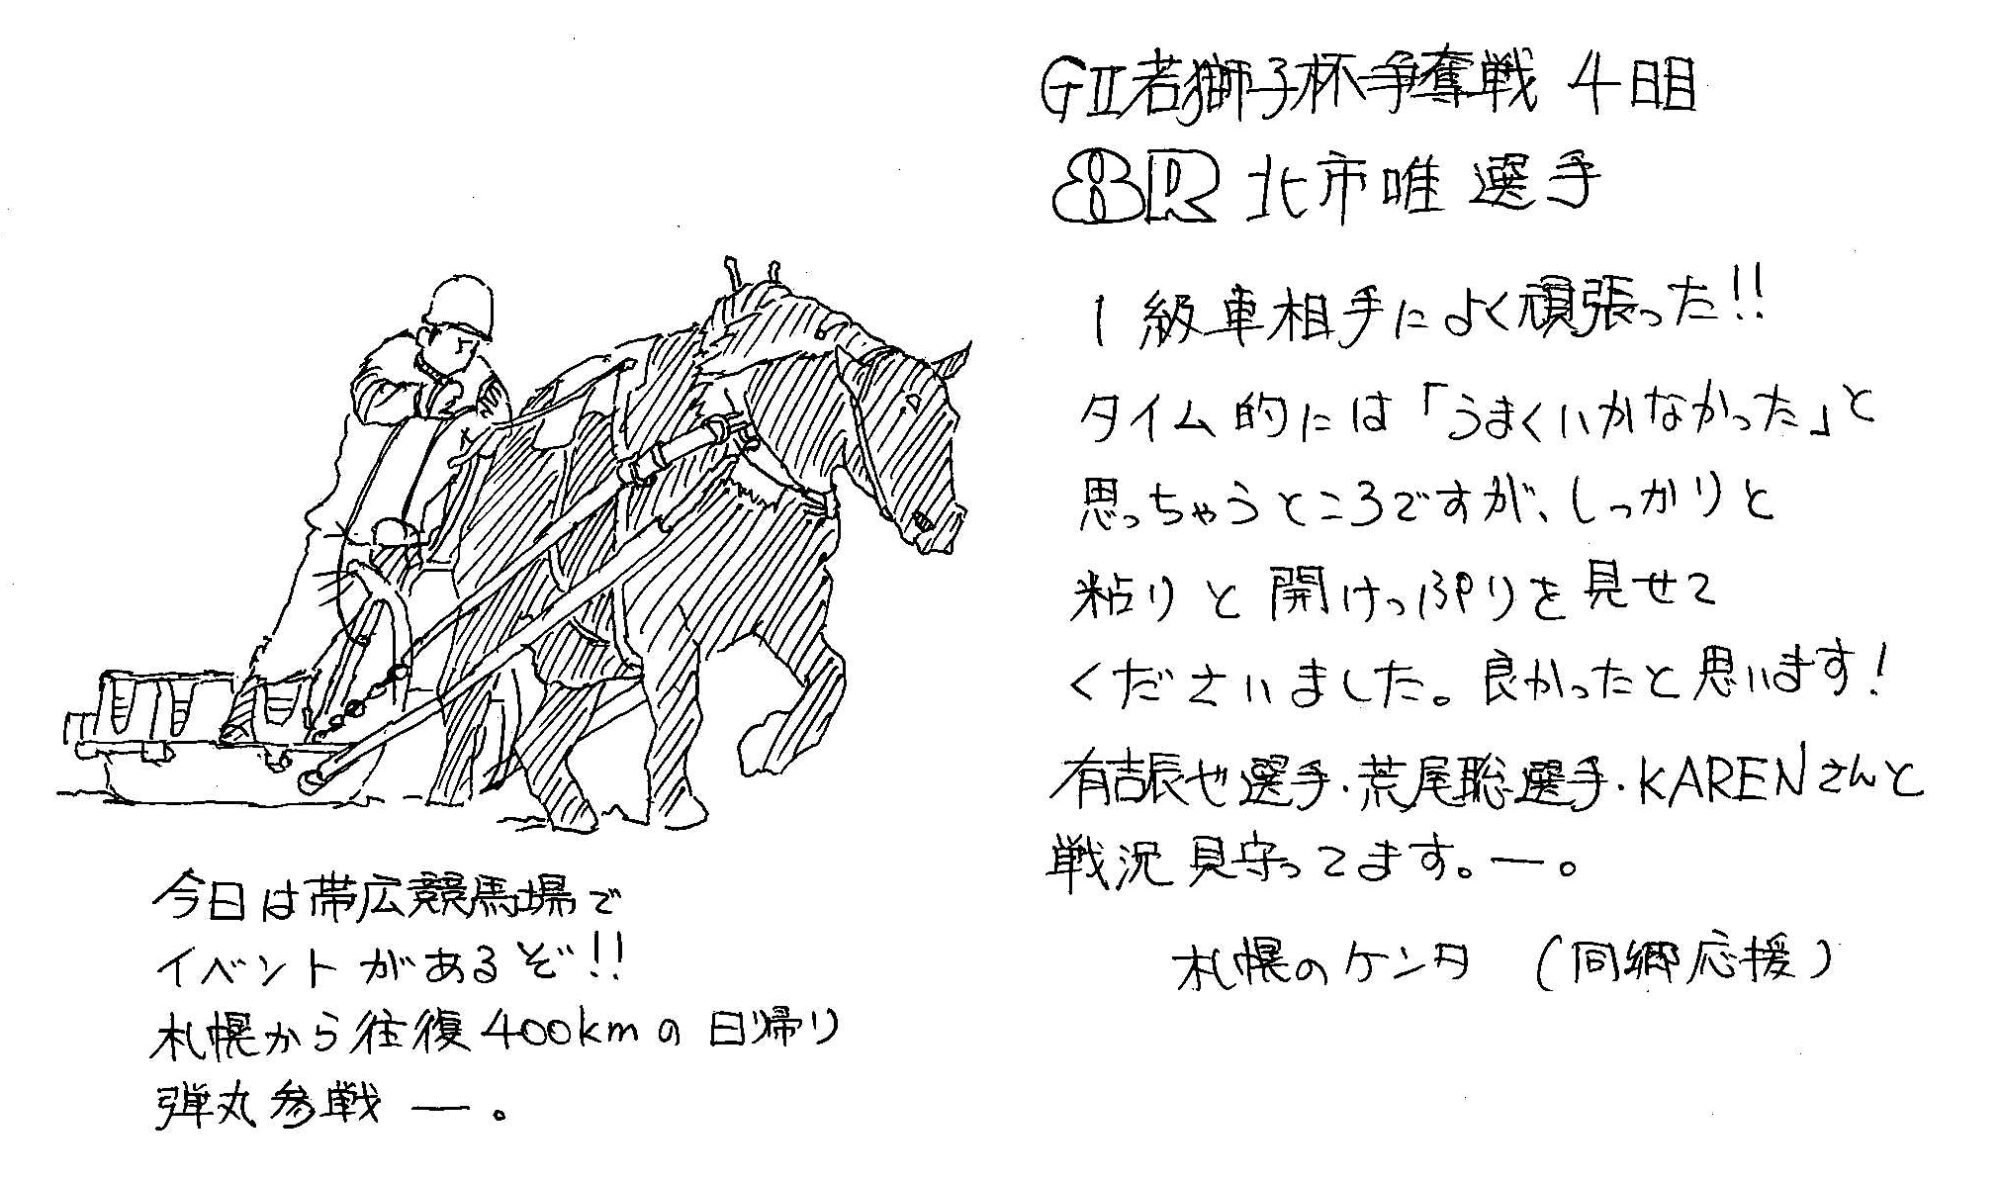 GⅡ若獅子杯争奪戦 4日目
8R 北市唯 選手
1級車相手によく頑張った!!
タイム的には「うまくいかなかった」と
思っちゃうところですが、しっかりと
粘りと開けっぷりを見せて
くださいました。良かったと思います!
有吉辰也選手・荒尾聡選手・KARENさんと
戦況見守ってます。ー。
札幌のケンタ (同郷応援)
今日は帯広競馬場で
イベントがあるぞ!!
札幌から往復400kmの日帰り
弾丸参戦ー。